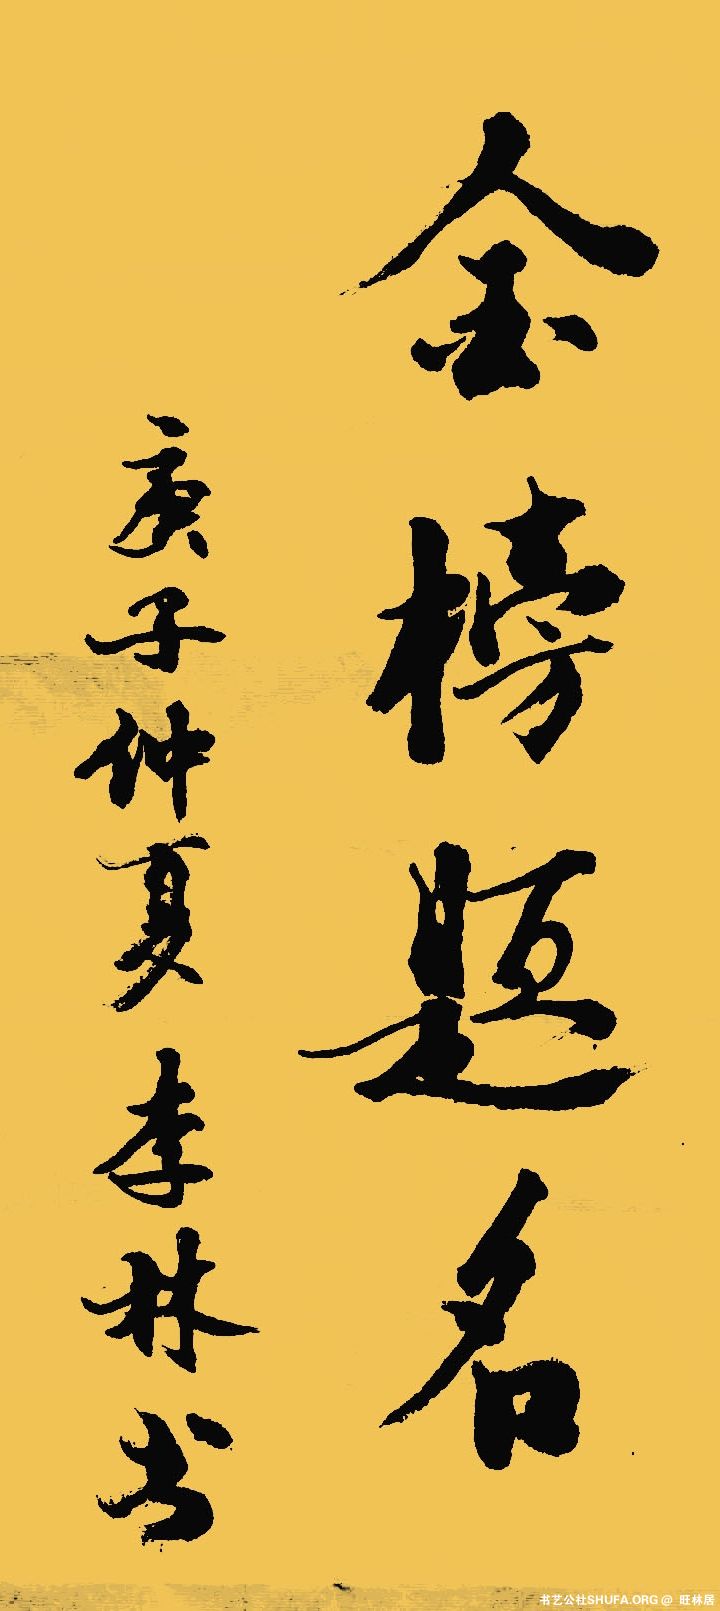 金榜题名
庚子仲夏李林书
书艺公社SHUFA.ORG @ 旺林居